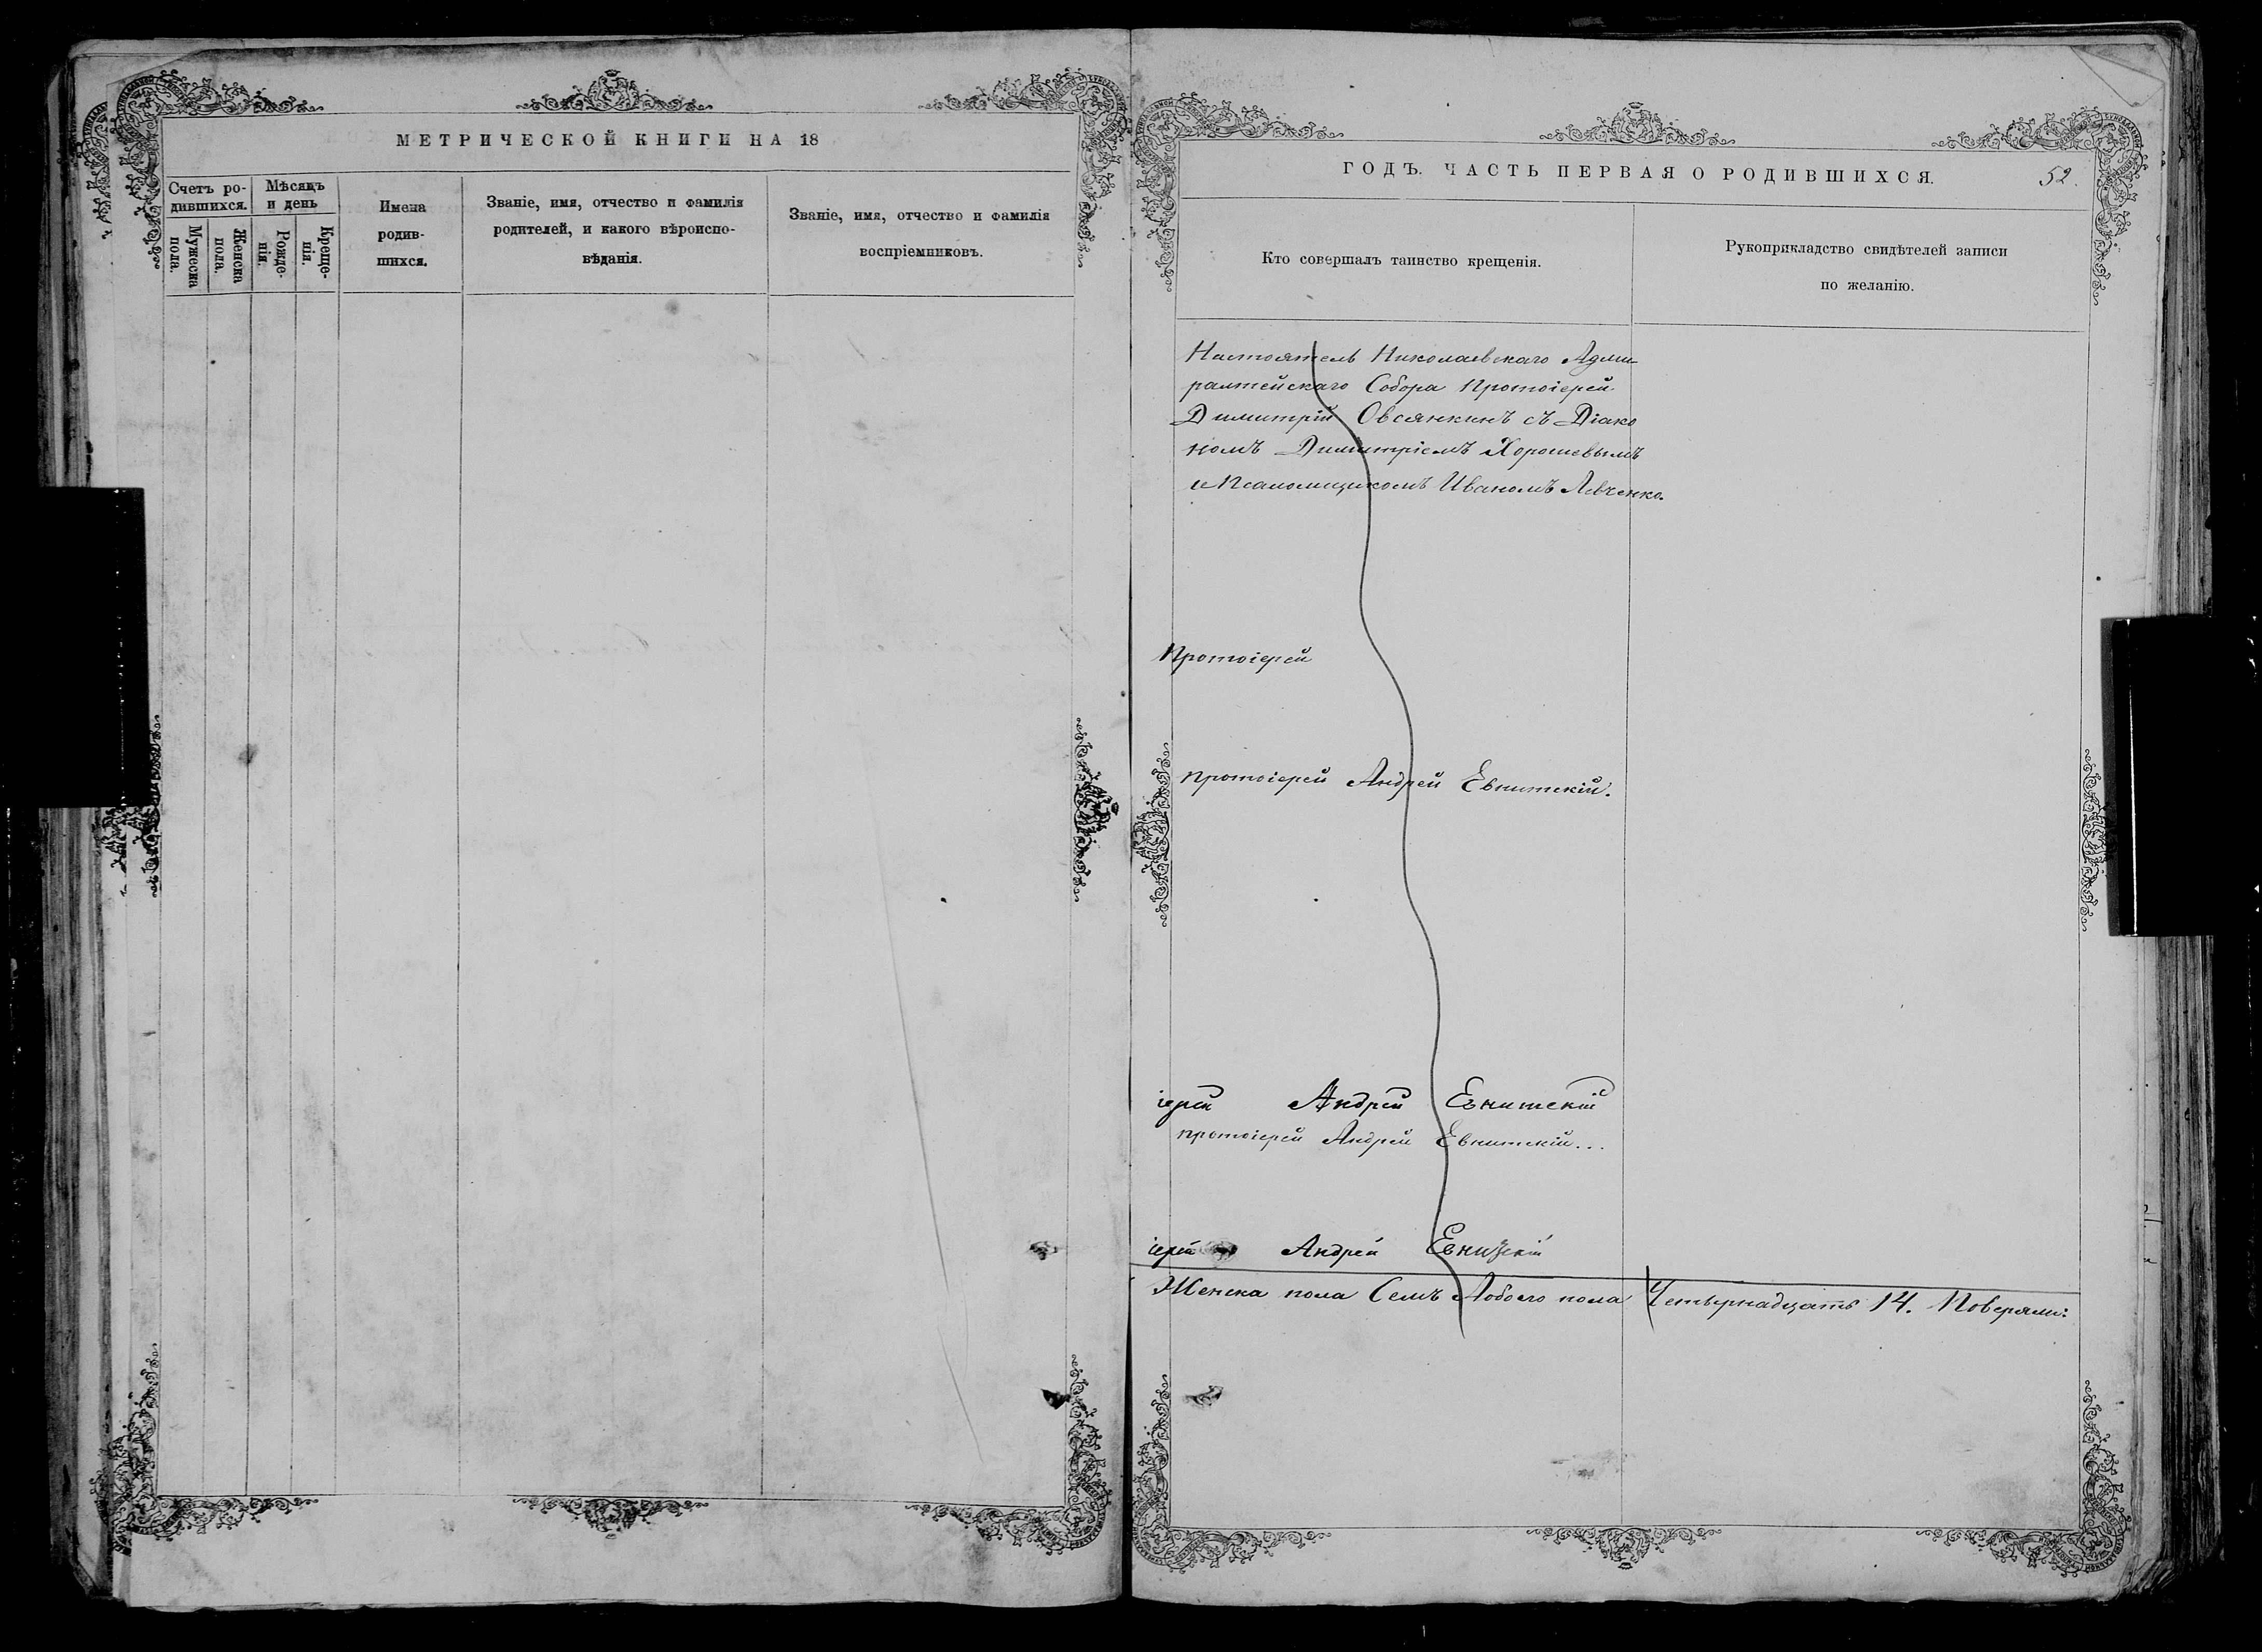 МЕТРИЧЕСКОЙ КНИГИ НА 18
Счетъ ро-
дившихся.
Мужеска
пола.
Женска
пола.
Мѣсяцъ
и день
Рожде-
нія.
Креще-
нія.
Имена
родив-
шихся.
Званіе, имя, отчество и фамилія
родителей, и какого вѣроиспо-
вѣданія.
Званіе, имя, отчество и фамилія
воспріемниковъ.
ГОДЪ. ЧАСТЬ ПЕРВАЯ О РОДИВШИХСЯ.
52.
Кто совершалъ таинство крещенія.
Рукоприкладство свидѣтелей записи
по желанію.
Настоятель Николаевскаго Адми-
ралтейскаго Собора Протоіерей
Димитрій Овсянкинъ съ Діако
номъ Димитріемъ Хорошевымъ
и Псаломщикомъ Иваномъ Левченко.
Протоіерей
протоіерей Андрей Евнитскій.
іерей Андрей Евнитскій
протоіерей Андрей Евнитскій...
іерей Андрей Евницкій
Женска пола Семь Обоего пола Четырнадцать 14.